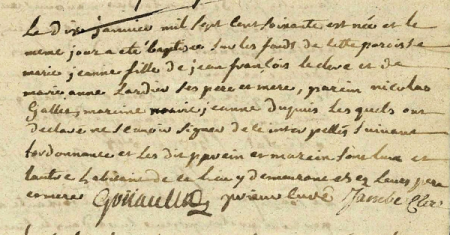 Le dix janvier mil sept cent soixante est née et le
meme jour a eté baptisée sur les fonts de cette paroisse
marie jeanne fille de jean françois le clerc et de
marie anne Lardier ses pere et mere, parein nicolas
Gallet, mareine marie jeanne dupuis les quels ont
declaré ne scavoir signer de ce interpellés suivant
l'ordonnance et les dit parein et mareine sont l'un et
l'autre habitans de ce lieu y demeurans chez leurs pere
et mere
prieur curé Clerc